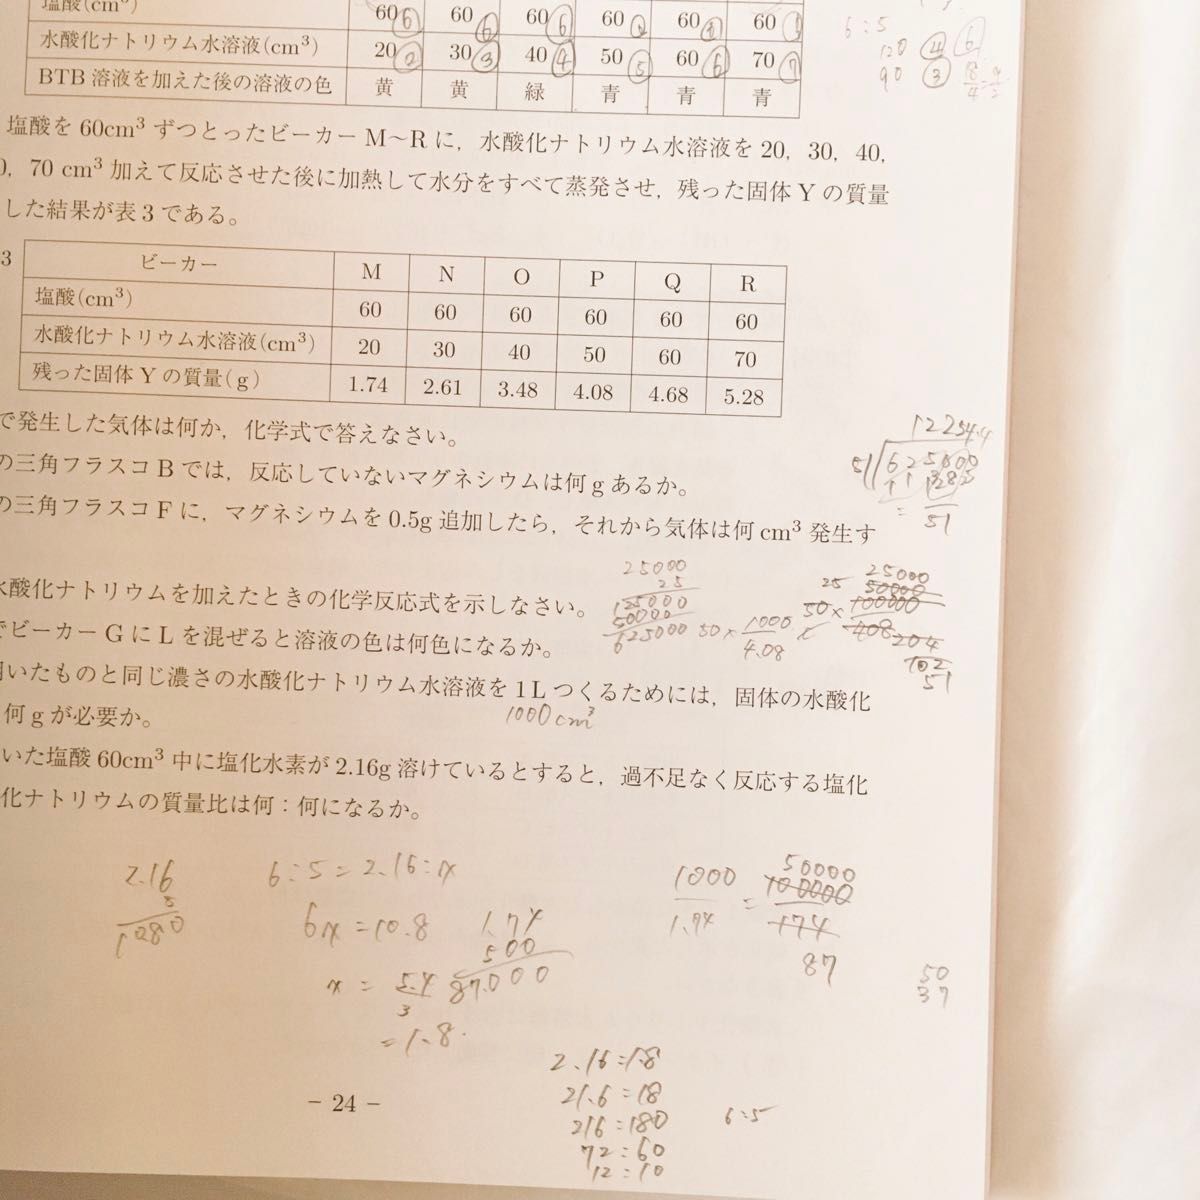 塩酸(cm³) 60⑥ 60⑥ 60⑥ 60 60 60
水酸化ナトリウム水溶液(cm³) 20② 30③ 40④ 50⑤ 60⑥ 70⑦
BTB 溶液を加えた後の溶液の色 黄 黄 緑 青 青 青
6:5
120 ④ ⑥
90 ③
塩酸を 60cm³ ずつとったビーカー M〜R に，水酸化ナトリウム水溶液を 20，30，40，
0，70 cm³ 加えて反応させた後に加熱して水分をすべて蒸発させ，残った固体 Y の質量
した結果が表 3 である。
3
ビーカー M N O P Q R
塩酸(cm³) 60 60 60 60 60 60
水酸化ナトリウム水溶液(cm³) 20 30 40 50 60 70
残った固体 Y の質量(g) 1.74 2.61 3.48 4.08 4.68 5.28
で発生した気体は何か，化学式で答えなさい。
の三角フラスコ B では，反応していないマグネシウムは何 g あるか。
の三角フラスコ F に，マグネシウムを 0.5g 追加したら，それから気体は何 cm³ 発生す
12254.4
51 625000
51
水酸化ナトリウムを加えたときの化学反応式を示しなさい。
でビーカー G に L を混ぜると溶液の色は何色になるか。
25000
25
125000
50000
625000
50×1000/4.08
25 25000
50000
50× 100000
408 204
102
51
用いたものと同じ濃さの水酸化ナトリウム水溶液を 1 L つくるためには，固体の水酸化
何 g が必要か。
1000cm³
いた塩酸 60cm³ 中に塩化水素が 2.16g 溶けているとすると，過不足なく反応する塩化
化ナトリウムの質量比は何：何になるか。
2.16
5
1080
6:5=2.16:x
6x=10.8
x=5.4/3
=1.8
1.74
500
87,000
1000/1.74 = 50000
100000
174
87
50
37
2.16:1.8
21.6:18
216:180
72:60
12:10
6:5
− 24 −